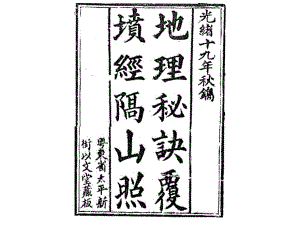 光緒十九年秋鐫
地理秘訣覆
墳經隔山照
粵東省太平新
街以文堂藏板